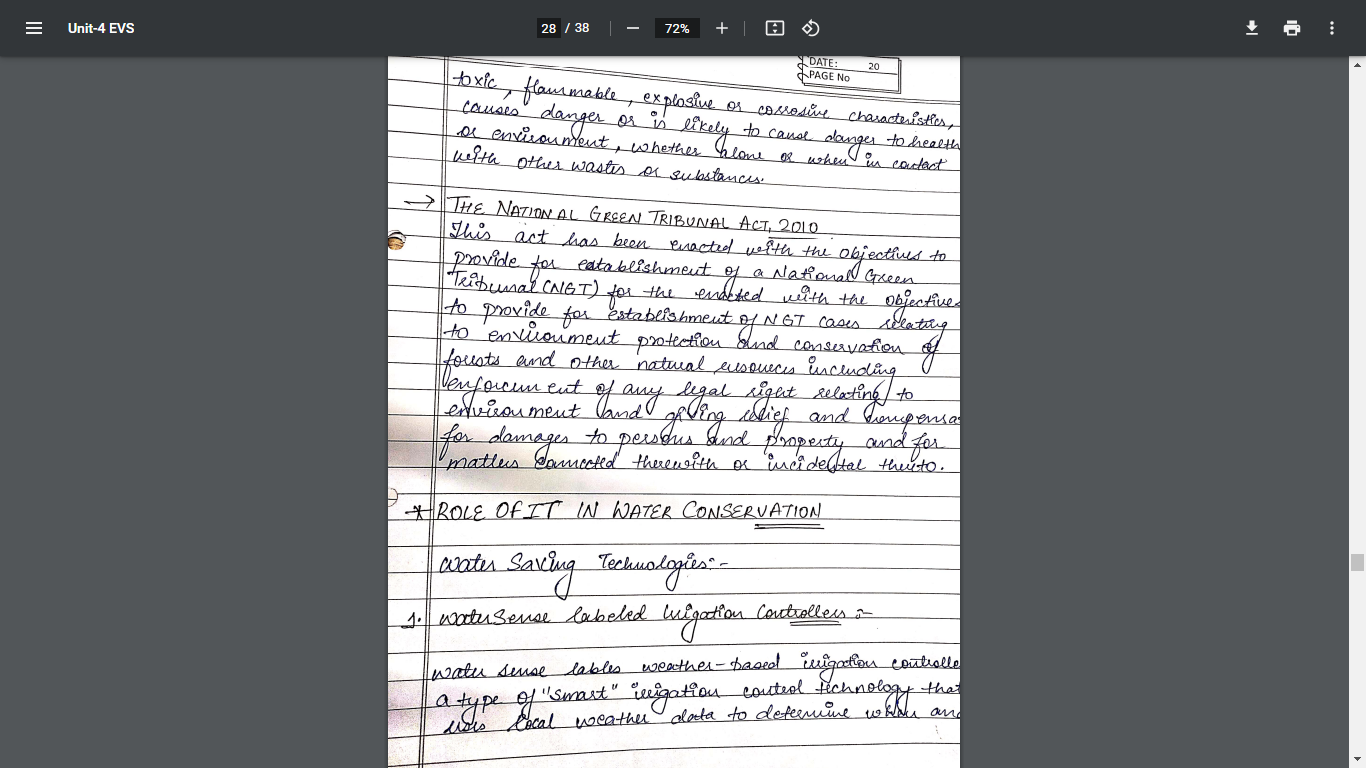 Unit-4 EVS
28 / 38
72%
DATE: 20
PAGE No
toxic, flammable, explosive or corrosive characteristics,
causes danger or is likely to cause danger to health
or environment, whether alone or when in contact
with other wastes or substances.
→ THE NATIONAL GREEN TRIBUNAL ACT, 2010
This act has been enacted with the objectives to
provide for establishment of a National Green
Tribunal (NGT) for the enacted with the objective
to provide for establishment of NGT cases relating
to environment protection and conservation of
forests and other natural resources including
enforcement of any legal right relating to
environment and giving relief and compensa
for damages to persons and property and for
matters connected therewith or incidental thereto.
* ROLE OF IT IN WATER CONSERVATION
Water Saving Technologies:-
1. WaterSense labeled Irrigation Controllers :-
water sense lables weather-based irrigation controlle
a type of "smart" irrigation control technology that
uses local weather data to determine when and